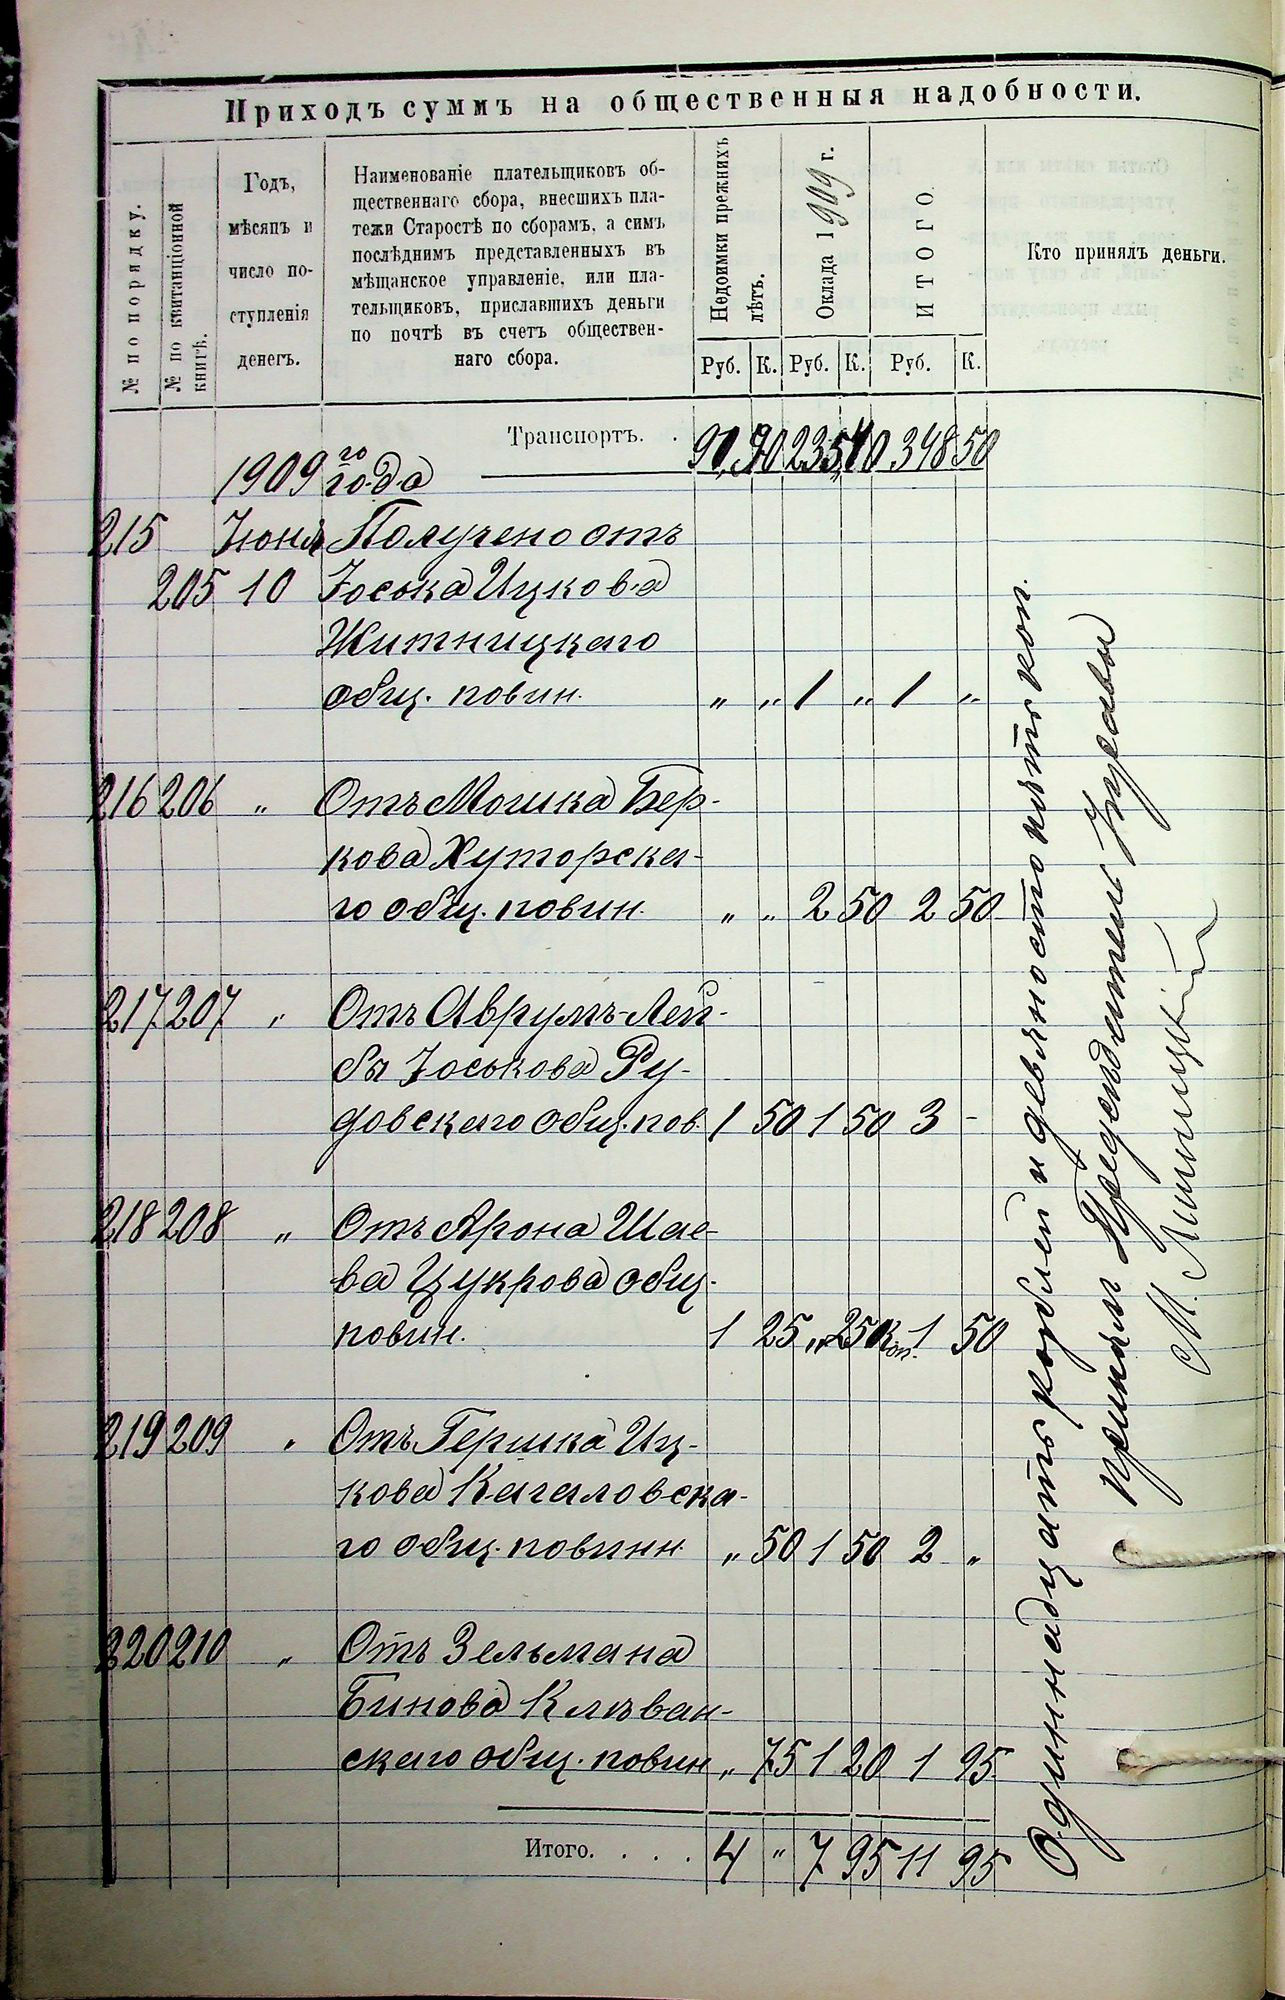 Приходъ суммъ на общественныя надобности.
№ по порядку.
№ по квитанціонной книгѣ.
Годъ,
мѣсяцъ и
число по-
ступленія
денегъ.
Наименованіе плательщиковъ об-
щественнаго сбора, внесшихъ пла-
тежи Старостѣ по сборамъ, а симъ
послѣднимъ представленныхъ въ
мѣщанское управленіе, или пла-
тельщиковъ, приславшихъ деньги
по почтѣ въ счетъ обществен-
наго сбора.
Недоимки прежнихъ лѣтъ.
Оклада 1909 г.
ИТОГО.
Кто принялъ деньги.
Руб. К. Руб. К. Руб. К.
Транспортъ. . 348 50
1909 го года
215 Іюня Получено отъ
205 10 Іоська Ицкова
Житницкаго
общ. повин. „ „ 1 „ 1 „
216 206 „ Отъ Мошка Бер-
кова Хуторска-
го общ. повин. „ „ 2 50 2 50
217 207 „ Отъ Аврумъ-Лей-
бы Іоськова Ру-
довскаго общ. пов. 1 50 1 50 3 -
218 208 „ Отъ Арона Шае-
ва Цукрова общ.
повин. 1 25 „ 25 коп. 1 50
219 209 „ Отъ Гершка Иц-
кова Кагаловска-
го общ. повинн „ 50 1 50 2 „
220 210 „ Отъ Зельмана
Бинова Клѣван-
скаго общ. повин „ 75 1 20 1 95
Итого. . . . 4 „ 7 95 11 95
Одиннадцать рублей и девяносто пять коп.
принялъ Предсѣдатель Управы